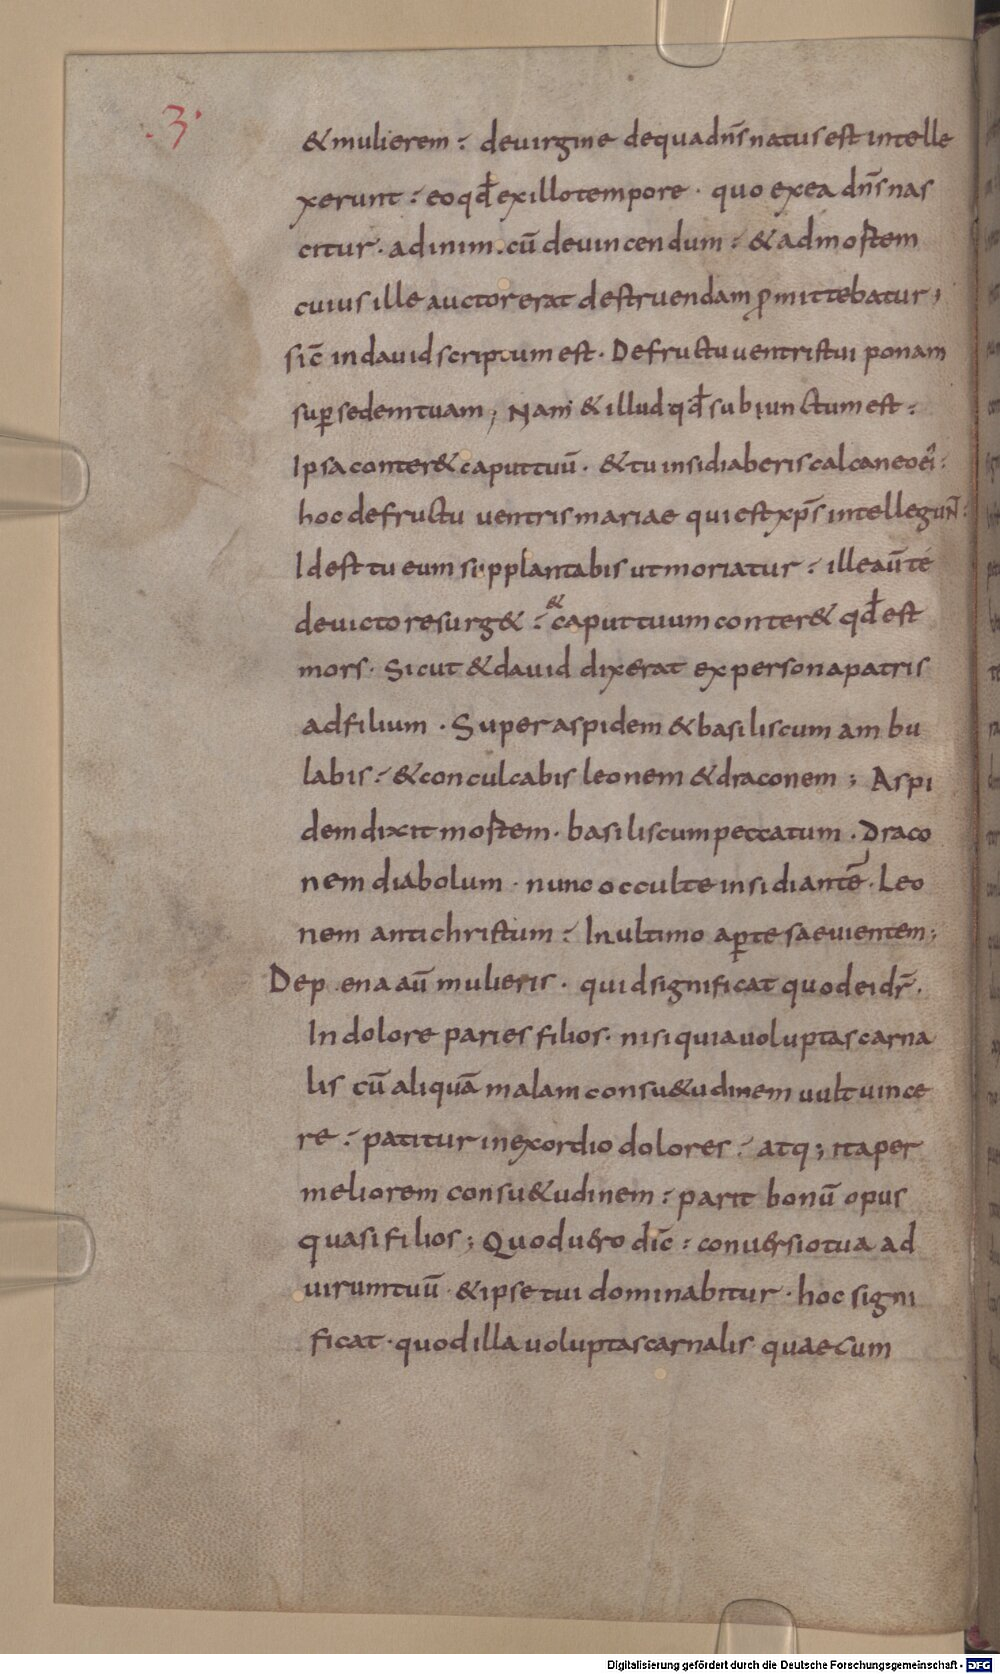 ·3·
& mulierem : de uirgine de qua dn̄s natus est intelle
xerunt : eo qđ ex illo tempore · quo ex ea dn̄s nas
citur · ad inim.cū deuincendum : & ad mortem
cuius ille auctor erat destruendam ꝓmittebatur ;
sic̄ in dauid scriptum est · De fructu uentris tui ponam
suꝑ sedem tuam ; Nam & illud qđ subiunctum est :
Ipsa conter& caput tuū · & tu insidiaberis calcaneo ei᷒ :
hoc de fructu uentris mariae qui est xp̄s intellegun̄ :
Id est tu eum supplantabis ut moriatur : ille aūt te
deuicto resurg& : & caput tuum conter& qđ est
mors · Sicut & dauid dixerat ex persona patris
ad filium · Super aspidem & basiliscum ambu
labis : & conculcabis leonem & draconem ; Aspi
dem dixit mortem · basiliscum peccatum · Draco
nem diabolum · nunc occulte insidiantē · Leo
nem antichristum : In ultimo aꝑte saeuientem ;
De pena aū mulieris · quid significat quod ei dr̄ ·
In dolore paries filios · nisi quia uoluptas carna
lis cū aliquā malam consu&udinem uult uince
re : patitur in exordio dolores : atq; ita per
meliorem consu&udinem : parit bonū opus
quasi filios ; Quod uero dic̄ : conuersio tua ad
uirum tuū · & ipse tui dominabitur · hoc signi
ficat · quod illa uoluptas carnalis quae cum
Digitalisierung gefördert durch die Deutsche Forschungsgemeinschaft - DFG